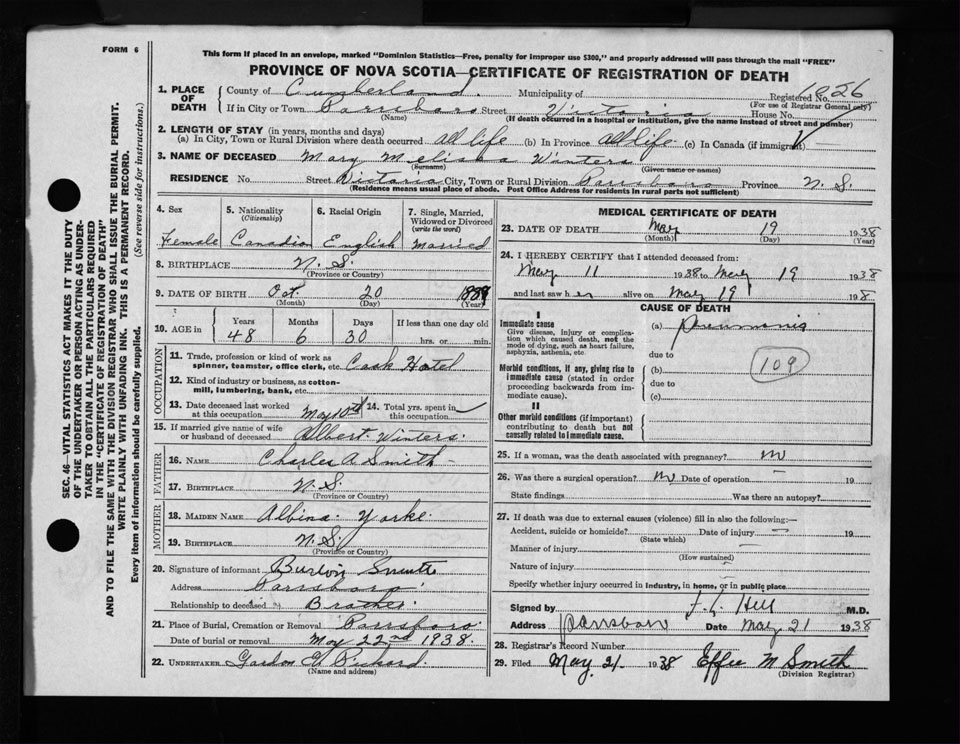 FORM 6
This form if placed in an envelope, marked "Dominion Statistics—Free, penalty for improper use $300," and properly addressed will pass through the mail "FREE"
PROVINCE OF NOVA SCOTIA—CERTIFICATE OF REGISTRATION OF DEATH
SEC. 46—VITAL STATISTICS ACT MAKES IT THE DUTY
OF THE UNDERTAKER OR PERSON ACTING AS UNDER-
TAKER TO OBTAIN ALL THE PARTICULARS REQUIRED
IN THE "CERTIFICATE OF REGISTRATION OF DEATH"
AND TO FILE THE SAME WITH THE DIVISION REGISTRAR WHO SHALL ISSUE THE BURIAL PERMIT.
WRITE PLAINLY WITH UNFADING INK. THIS IS A PERMANENT RECORD.
Every item of information should be carefully supplied. (See reverse side for instructions.)
1. PLACE OF DEATH
County of Cumberland Municipality of Registered No. 1826
(For use of Registrar General only)
If in City or Town Parrsboro Street Victoria House No.
(Name) (If death occurred in a hospital or institution, give the name instead of street and number)
2. LENGTH OF STAY (in years, months and days)
(a) In City, Town or Rural Division where death occurred All life (b) In Province All life (c) In Canada (if immigrant)
3. NAME OF DECEASED Mary Melissa Winters
(Surname) (Given name or names)
RESIDENCE No. Street Victoria City, Town or Rural Division Parrsboro Province N.S.
(Residence means usual place of abode. Post Office Address for residents in rural parts not sufficient)
4. Sex 5. Nationality (Citizenship) 6. Racial Origin 7. Single, Married, Widowed or Divorced (write the word)
Female Canadian English Married
8. BIRTHPLACE N.S.
(Province or Country)
9. DATE OF BIRTH Oct. 20 1889
(Month) (Day) (Year)
10. AGE in Years Months Days If less than one day old
48 6 30 hrs. or min.
OCCUPATION
11. Trade, profession or kind of work as
spinner, teamster, office clerk, etc. Cook Hotel
12. Kind of industry or business, as cotton-
mill, lumbering, bank, etc.
13. Date deceased last worked at this occupation May 10th 14. Total yrs. spent in this occupation
15. If married give name of wife
or husband of deceased Albert Winters.
FATHER
16. NAME Charles A Smith
17. BIRTHPLACE N.S.
(Province or Country)
MOTHER
18. MAIDEN NAME Albina Yorke
19. BIRTHPLACE N.S.
(Province or Country)
20. Signature of informant Burton Smith
Address Parrsboro
Relationship to deceased Brother
21. Place of Burial, Cremation or Removal Parrsboro
Date of burial or removal May 22nd 1938.
22. UNDERTAKER Gordon Pickard.
(Name and address)
MEDICAL CERTIFICATE OF DEATH
23. DATE OF DEATH May 19 1938
(Month) (Day) (Year)
24. I HEREBY CERTIFY that I attended deceased from:
May 11 1938 to May 19 1938
and last saw her alive on May 19 198
CAUSE OF DEATH
I
Immediate cause
Give disease, injury or complica-
tion which caused death, not the
mode of dying, such as heart failure,
asphyxia, asthenia, etc.
(a) Pneumonia
due to
Morbid conditions, if any, giving rise to
immediate cause (stated in order
proceeding backwards from im-
mediate cause).
(b)
due to
(c)
109
II
Other morbid conditions (if important)
contributing to death but not
causally related to immediate cause.
25. If a woman, was the death associated with pregnancy? no
26. Was there a surgical operation? no Date of operation — 19
State findings Was there an autopsy?
27. If death was due to external causes (violence) fill in also the following:—
Accident, suicide or homicide? Date of injury — 19
(State which)
Manner of injury
(How sustained)
Nature of injury
Specify whether injury occurred in industry, in home, or in public place
Signed by Hill M.D.
Address Parrsboro Date May 21 1938
28. Registrar's Record Number
29. Filed May 21 1938 Effie M Smith
(Division Registrar)